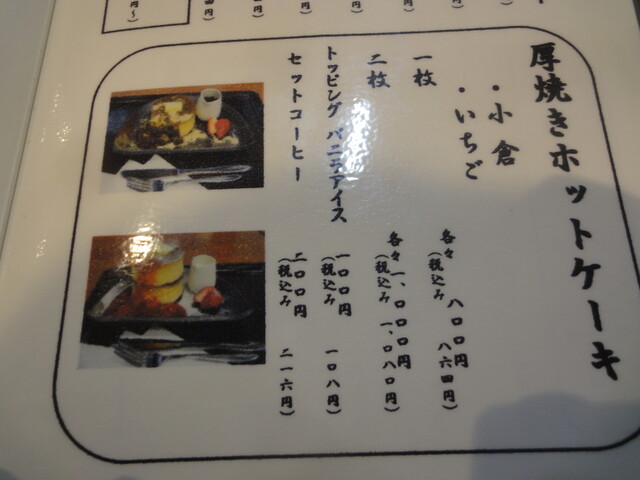 厚焼きホットケーキ
・小倉
・いちご
一枚 各々 八〇〇円
(税込み 八六四円)
二枚 各々 一、〇〇〇円
(税込み 一、〇八〇円)
トッピング バニラアイス 一〇〇円
(税込み 一〇八円)
セットコーヒー 二〇〇円
(税込み 二一六円)